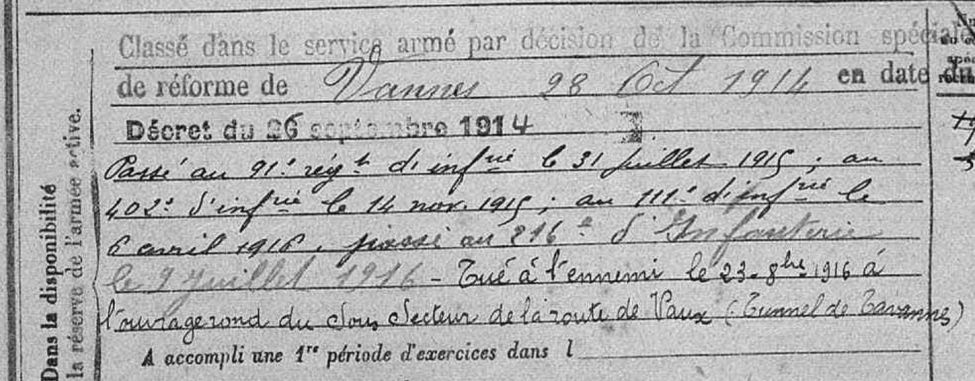 Classé dans le service armé par décision de la Commission spéciale
de réforme de Vannes 28 Oct 1914 en date du
Décret du 26 septembre 1914
Passé au 91e régt d'infrie le 31 juillet 1915 ; au
402e d'infrie le 14 nov. 1915 ; au 111e d'infrie le
6 avril 1916, passé au 216e d'Infanterie
le 9 juillet 1916 - Tué à l'ennemi le 23-8bre 1916 à
l'ouvrage rond du Sous Secteur de la route de Vaux (Tunnel de Tavannes)
A accompli une 1re période d'exercices dans l
Dans la disponibilité
la réserve de l'armée active.